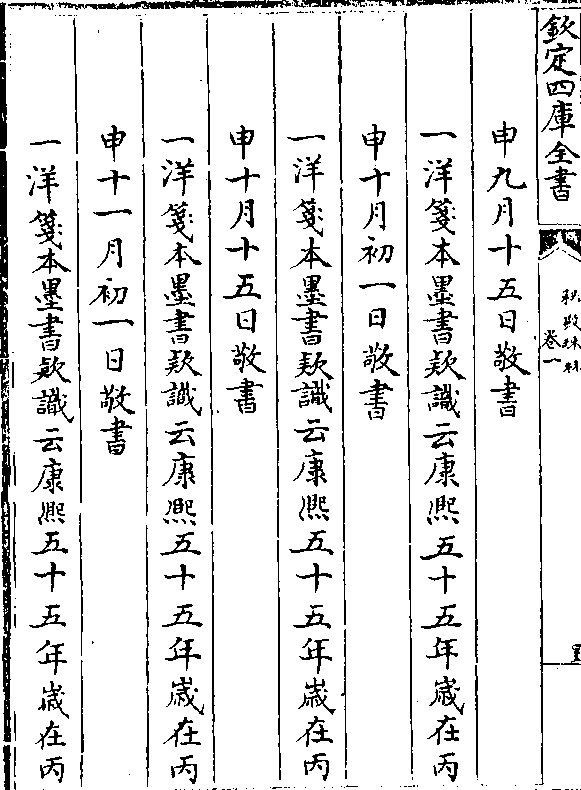 欽定四庫全書
秘殿珠林
卷一
申九月十五日敬書
一洋箋本墨書款識云康熙五十五年歳在丙
申十月初一日敬書
一洋箋本墨書款識云康熙五十五年歳在丙
申十月十五日敬書
一洋箋本墨書款識云康熙五十五年歳在丙
申十一月初一日敬書
一洋箋本墨書款識云康熙五十五年歳在丙